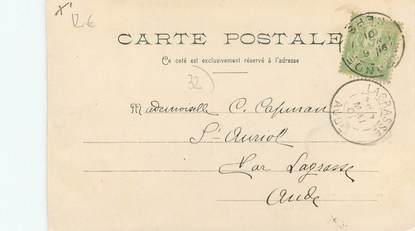 12 €
CARTE POSTALE
Ce côté est exclusivement réservé à l'adresse
32
Mademoiselle C.
St Auriol
Par Lagrasse
Aude
LAGRASSE
MAI
AUDE